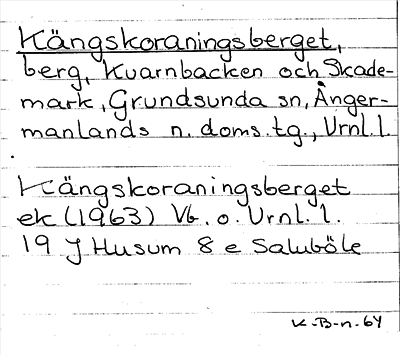 Kängskoraningsberget,
berg, Kvarnbacken och Skade-
mark, Grundsunda sn, Ånger-
manlands n. doms.tg., Vrnl.l.
Kängskoraningsberget
ek (1963) Vb. o. Vrnl. l.
19 J Husum 8 e Saluböle
K-B-n-64